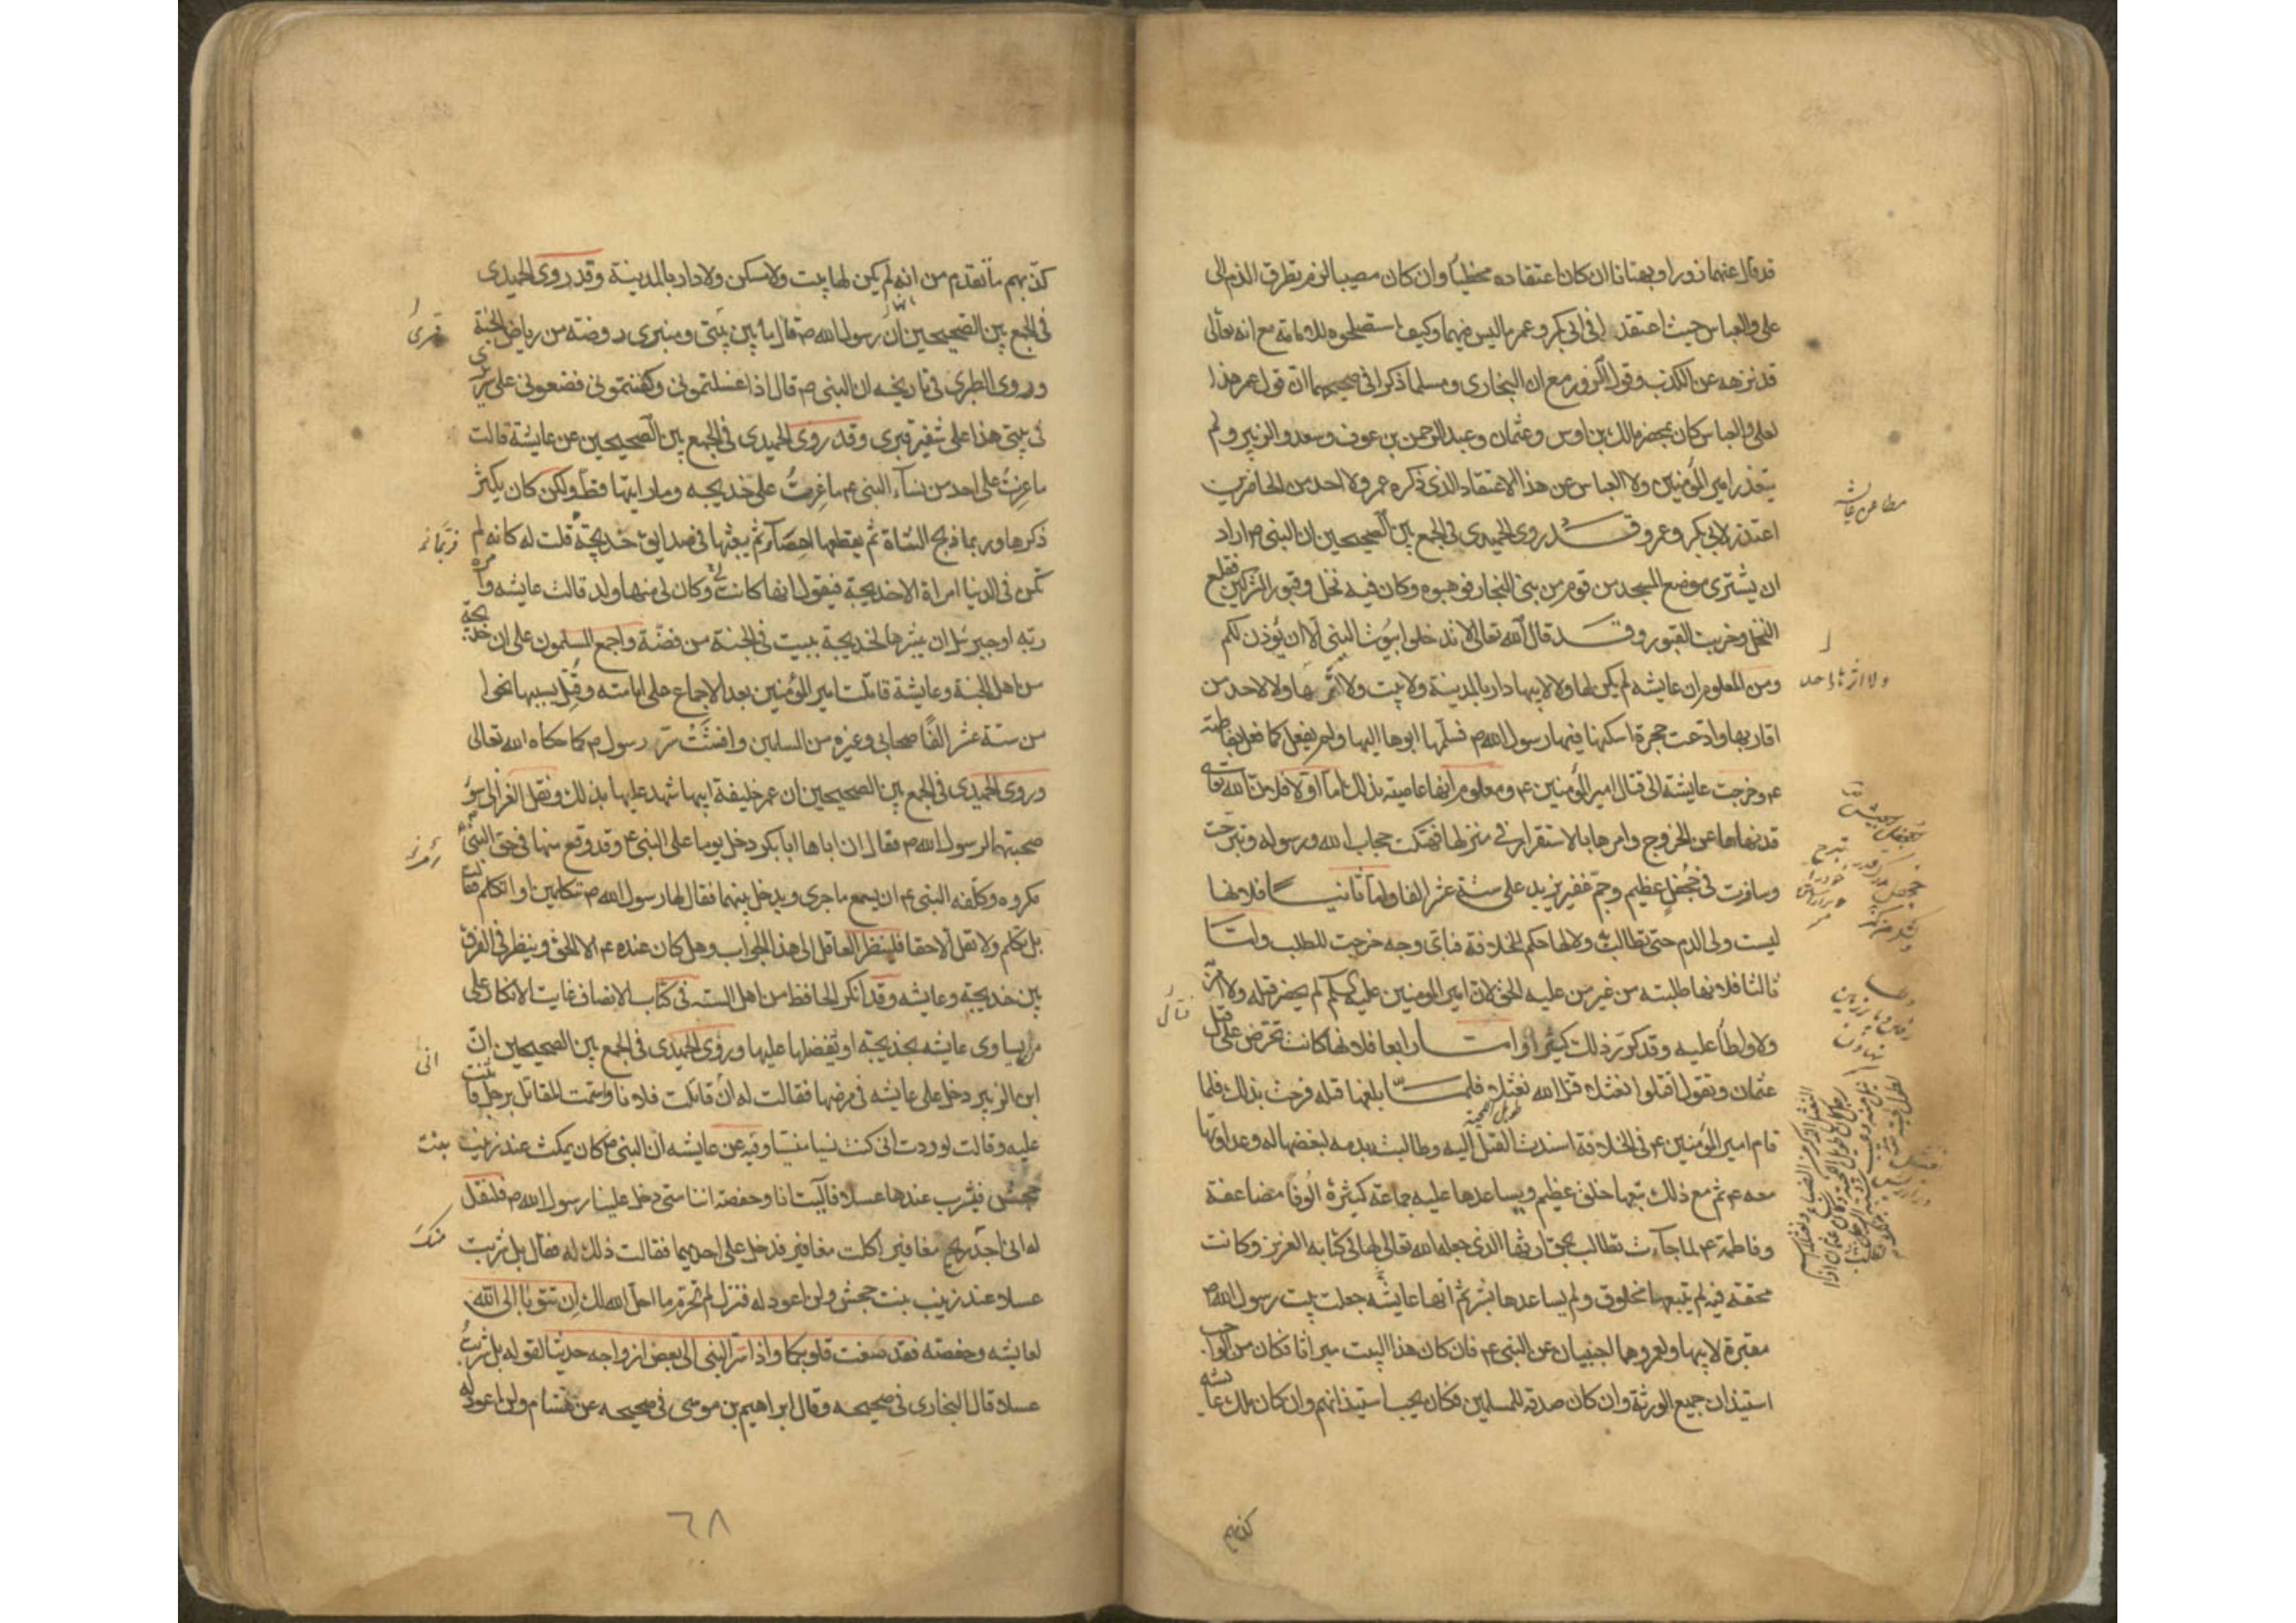 قد قال عنهما زورا وبهتانا ان كان اعتقاده مخطيا وان كان مصيبا لزم تطرق الذم الى
على والعباس حيث اعتقدا فى ابى بكر وعمر ما ليس فيهما وكيف استصلحوه للامامة مع انه تعالى
قد نزهه عن الكذب وقول الزور مع ان البخارى ومسلما ذكرا فى صحيحهما ان قول عمر هذا
لعلى والعباس كان بمحضر مالك بن اوس وعثمان وعبد الرحمن بن عوف وسعد والزبير ولم
يعتذر امير المؤمنين ولا العباس عن هذا الاعتقاد الذى ذكره عمر ولا احد من الحاضرين
اعتذر لابى بكر وعمر وقد روى الحميدى فى الجمع بين الصحيحين ان النبى ص اراد
ان يشترى موضع المسجد من قوم من بنى النجار فوهبوه وكان فيه نخل وقبور المشركين فقلع
النخل وخرب القبور وقد قال الله تعالى لا تدخلوا بيوت النبى الا ان يؤذن لكم
ومن المعلوم ان عايشه لم يكن لها ولا لابيها دار بالمدينة ولا بيت ولا اثر بها ولا لاحد من
اقاربها وادعت حجرة اسكنها فيها رسول الله ص فسلمها ابوها اليها ولم يفعل كما فعل بفاطمة
ع وخرجت عايشة الى قتال امير المؤمنين ع ومعلوم انها عاصية بذلك اما اولا فلان الله تعالى
قد نهاها عن الخروج وامرها بالاستقرار فى منزلها فهتكت حجاب الله ورسوله وتبرجت
وسافرت فى جحفل عظيم وجم غفير يزيد على ستة عشر الفا واما ثانيا فلانها
ليست ولى الدم حتى تطالب به ولا لها حكم الخلافة فباى وجه خرجت للطلب واما
ثالثا فلانها طلبته من غير من عليه الحق لان امير المومنين عليه السلم لم يحضر قتله ولا امر
ولا واطأ عليه وقد ذكر ذلك كثيرا واما رابعا فلانها كانت تحرض على قتل
عثمان وتقول اقتلوا نعثلا قتل الله نعثلا فلما بلغها قتله فرحت بذلك فلما
قام امير المؤمنين ع فى الخلافة اسندت القتل اليه وطالبت بدمه لبغضها له وعداوتها
معه ع ثم مع ذلك تبعها خلق عظيم ويساعدها عليه جماعة كثيرة الوفا مضاعفة
وفاطمة ع لما جاءت تطالب بحق ارثها الذى جعله الله تعالى لها فى كتابه العزيز وكانت
محقة فيه لم يتبعها مخلوق ولم يساعدها بشر ثم انها عايشه جعلت بيت رسول الله ص
مقبرة لابيها ولعمر وهما اجنبيان عن النبى ع فان كان هذا البيت ميراثا فكان من الواجب
استيذان جميع الورثة وان كان صدقة للمسلمين فكان يجب استيذانهم وان كان ملك عايشه
مطاعن عايشه
كذبهم
كذبهم ما تقدم من انه لم يكن لها بيت ولا مسكن ولا دار بالمدينة وقد روى الحميدى
فى الجمع بين الصحيحين ان رسول الله ص قال ما بين بيتى ومنبرى روضة من رياض الجنة
وروى الطبرى فى تاريخه ان النبى ص قال اذا غسلتمونى وكفنتمونى فضعونى على سريرى
فى بيتى هذا على شفير قبرى وقد روى الحميدى فى الجمع بين الصحيحين عن عايشة قالت
ما غرت على احد من نساء النبى ع ما غرت على خديجه وما رايتها قط ولكن كان يكثر
ذكرها وربما ذبح الشاة ثم يقطعها اعضاء ثم يبعثها فى صدايق خديجة قلت له كانه لم
تكن فى الدنيا امراة الا خديجة فيقول انها كانت وكان لى منها ولد قالت عايشه وامره
ربه او جبرئيل ان يبشرها لخديجة ببيت فى الجنة من فضة واجمع المسلمون على ان خديجة
من اهل الجنة وعايشة قاتلت امير المؤمنين بعد الاجماع على امامته وقتل بسببها نحوا
من ستة عشر الفا صحابى وغيره من المسلمين وافشت سر رسول ص كما حكاه الله تعالى
وروى الحميدى فى الجمع بين الصحيحين ان عمر خليفة ابيها شهد عليها بذلك ونقل الغزالى سؤ
صحبتهما لرسول الله ص فقال ان اباها ابا بكر دخل يوما على النبى ع وقد وقع منها فى حق النبى
مكروه وكلفه النبى ع ان يسمع ما جرى ويدخل بينهما فقال لها رسول الله ص تتكلمين او اتكلم فقالت
بل تكلم ولا تقل الا حقا فلينظر العاقل الى هذا الجواب وهل كان عنده ع الا الحق وينظر فى الفرق
بين خديجة وعايشه وقد انكر الحافظ من اهل السنه فى كتاب الانصاف غايت الانكار على
من يساوى عايشه بخديجة او يفضلها عليها وروى الحميدى فى الجمع بين الصحيحين ان
ابن الزبير دخل على عايشه فى مرضها فقالت له ان قاتلت فلانا وسمت المقاتل برجل قاتلته
عليه وقالت لوددت انى كنت نسيا منسيا وفيه عن عايشه ان النبى ص كان يمكث عند زينب
جحش فيشرب عندها عسلا فآليت انا وحفصة اننا متى دخل علينا رسول الله ص فلنقل
له انى اجد ريح مغافير اكلت مغافير فدخل على احديهما فقالت ذلك له فقال بل شربت
عسلا عند زينب بنت جحش ولن اعود له فنزل لم تحرم ما احل الله لك ان تتوبا الى الله
لعايشه وحفصه فقد صغت قلوبكما واذ اسر النبى الى بعض ازواجه حديثا لقوله بل شربت
عسلا قال البخارى فى صحيحه وقال ابراهيم بن موسى فى صحيحه عن هشام ولن اعود له
انى
بنت
منك
٦٨